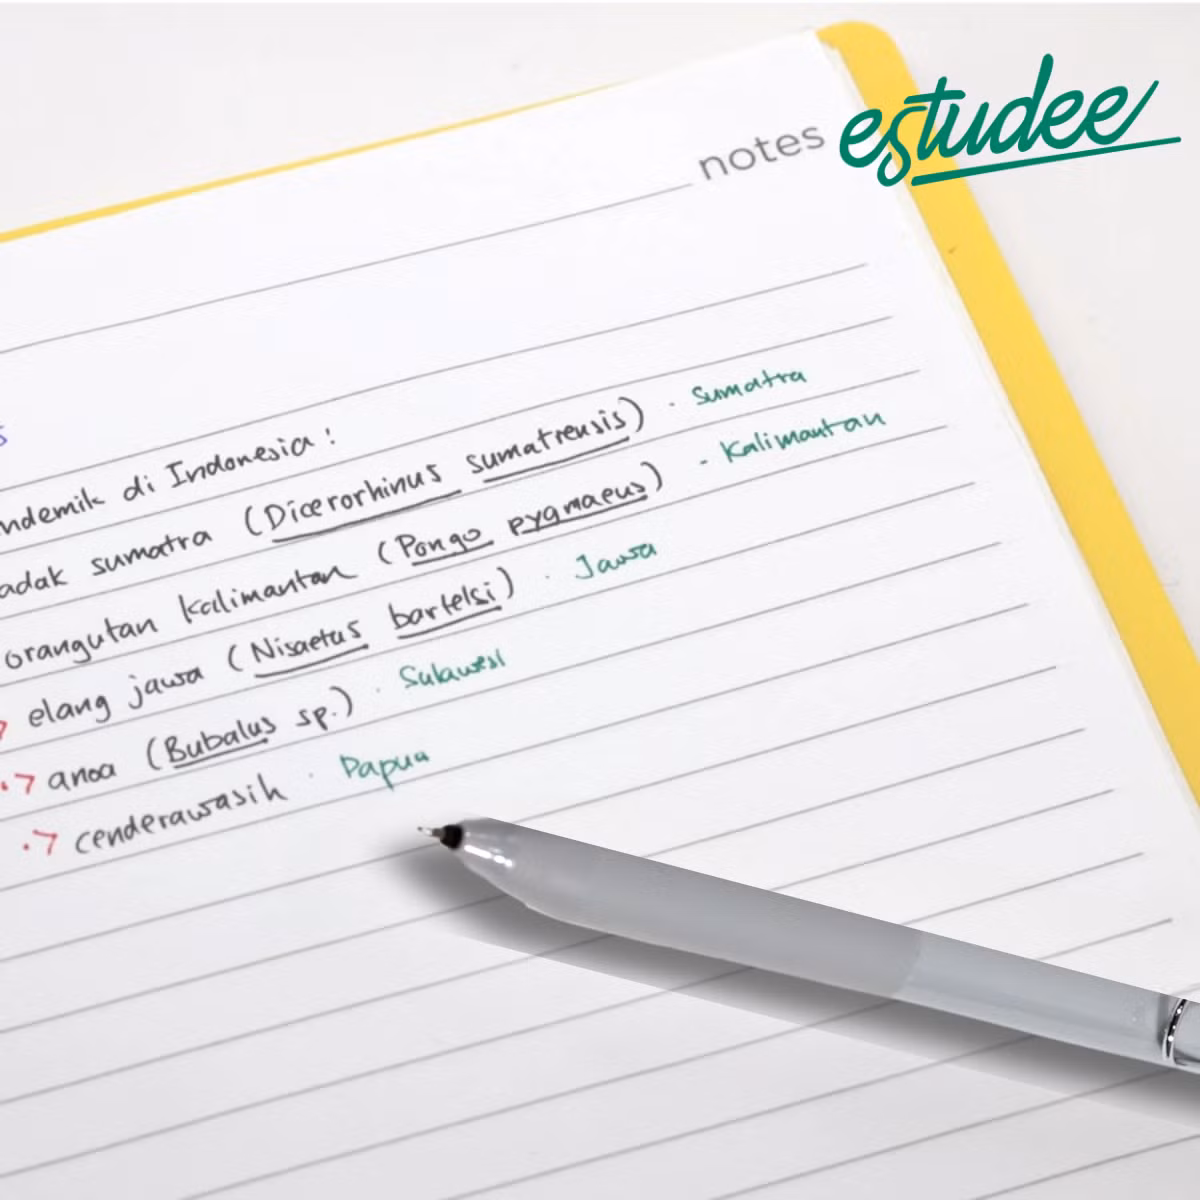 estudee
notes
ndemik di Indonesia :
adak sumatra (Dicerorhinus sumatrensis) . Sumatra
orangutan kalimantan (Pongo pygmaeus) - Kalimantan
elang jawa (Nisaetus bartelsi) . Jawa
.> anoa (Bubalus sp.) . Sulawesi
.> cenderawasih . Papua